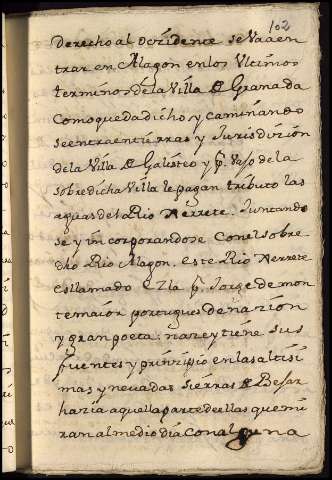 102
Derecho al ocçidente se Va a en
trar en Alagon en los Vltimos
terminos de la Villa de Granada
Como queda dicho y caminando
se entra en tierras y Jurisdizion
de la Villa de Galisteo y p. vajo de la
sobredicha Villa le pagan tributo las
aguas del Rio Xerrete. Juntando
se y incorporandose Con el sobre
dho Rio Alagon. este Rio Xerrete
es llamado el p. Jorge de mon
temaior portugues de naçion
y gran poeta. naze y tiene sus
fuentes y prinzipio en las altisi
mas y nevadas sierras de Besar
hazia aquella parte de ellas que mi
ran al medio dia Con alguna